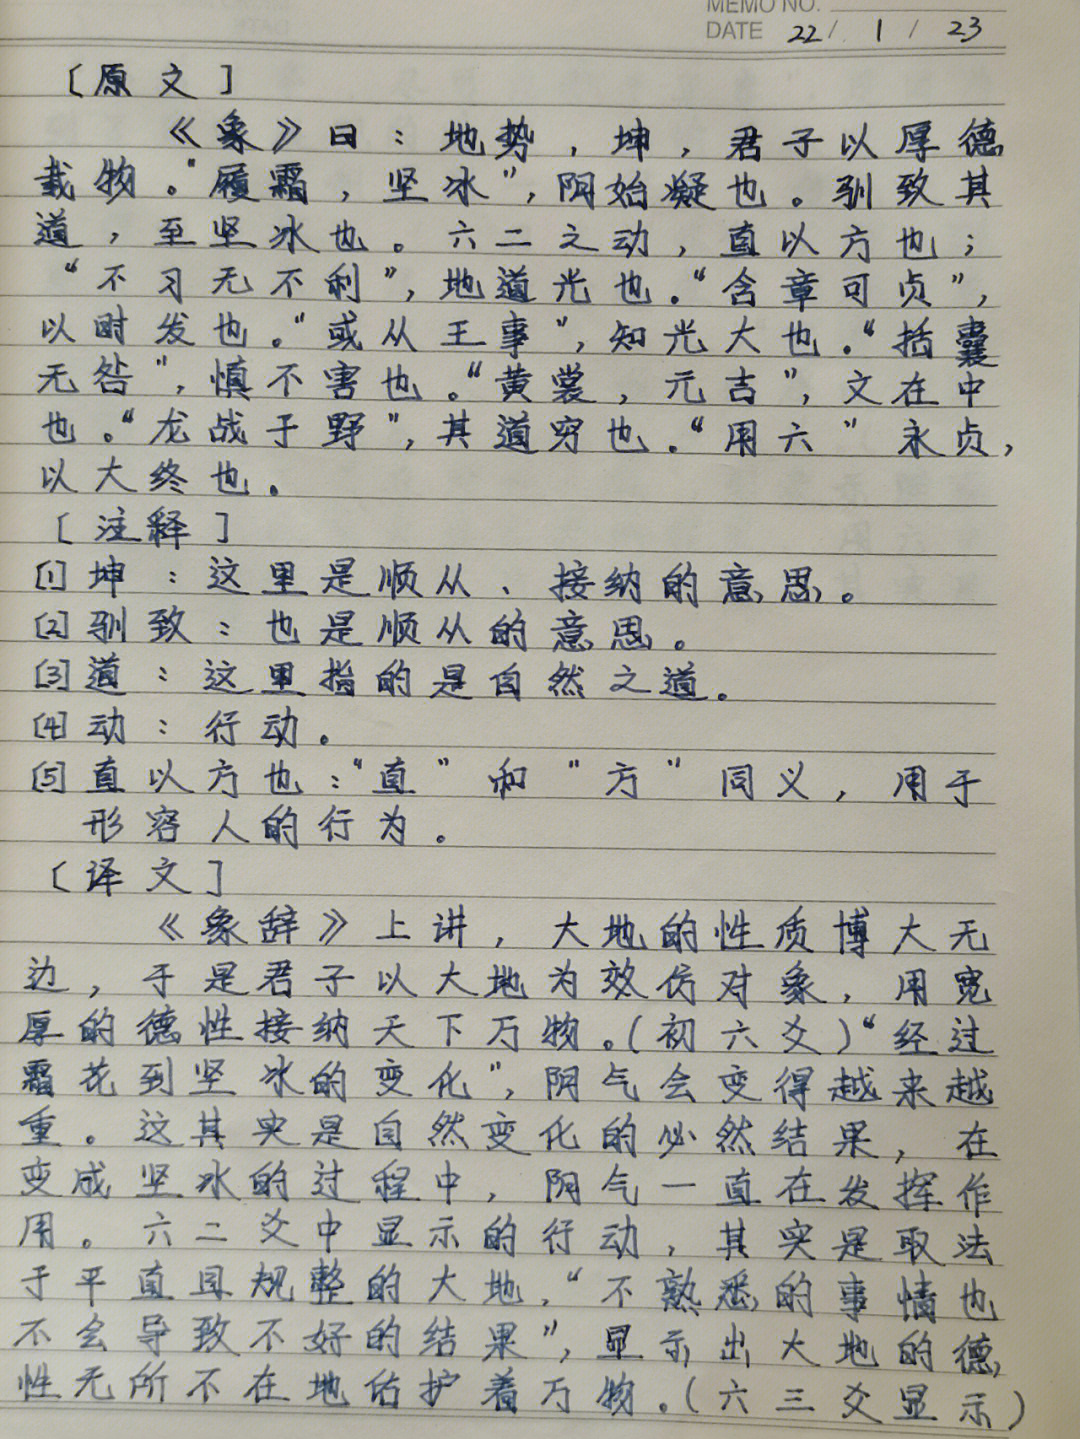 MEMO NO.
DATE 22 / 1 / 23
[原文]
《象》曰：地势，坤，君子以厚德
载物。"履霜，坚冰"，阴始凝也。驯致其
道，至坚冰也。六二之动，直以方也；
"不习无不利"，地道光也。"含章可贞"，
以时发也。"或从王事"，知光大也。"括囊
无咎"，慎不害也。"黄裳，元吉"，文在中
也。"龙战于野"，其道穷也。"用六"永贞，
以大终也。
[注释]
[1]坤：这里是顺从、接纳的意思。
[2]驯致：也是顺从的意思。
[3]道：这里指的是自然之道。
[4]动：行动。
[5]直以方也："直"和"方"同义，用于
形容人的行为。
[译文]
《象辞》上讲，大地的性质博大无
边，于是君子以大地为效仿对象，用宽
厚的德性接纳天下万物。(初六爻)"经过
霜花到坚冰的变化"，阴气会变得越来越
重。这其实是自然变化的必然结果，在
变成坚冰的过程中，阴气一直在发挥作
用。六二爻中显示的行动，其实是取法
于平直且规整的大地，"不熟悉的事情也
不会导致不好的结果"，显示出大地的德
性无所不在地佑护着万物。(六三爻显示)